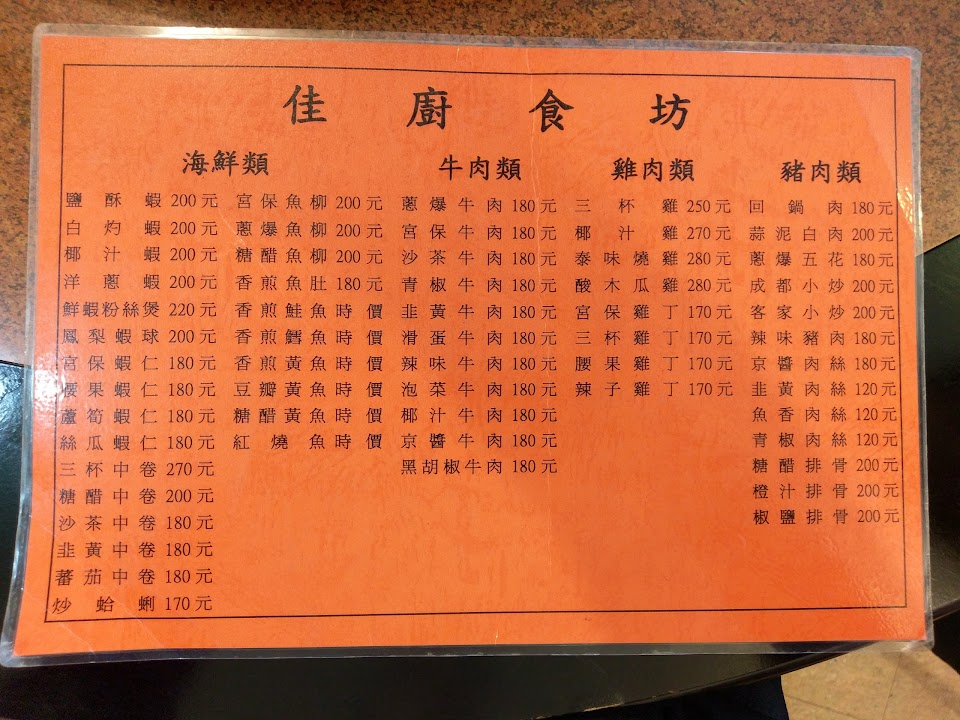 佳廚食坊
海鮮類
鹽酥蝦 200元
白灼蝦 200元
椰汁蝦 200元
洋蔥蝦 200元
鮮蝦粉絲煲 220元
鳳梨蝦球 200元
宮保蝦仁 180元
腰果蝦仁 180元
蘆筍蝦仁 180元
絲瓜蝦仁 180元
三杯中卷 270元
糖醋中卷 200元
沙茶中卷 180元
韭黃中卷 180元
蕃茄中卷 180元
炒蛤蜊 170元
宮保魚柳 200元
蔥爆魚柳 200元
糖醋魚柳 200元
香煎魚肚 180元
香煎鮭魚時價
香煎鱈魚時價
香煎黃魚時價
豆瓣黃魚時價
糖醋黃魚時價
紅燒魚時價
牛肉類
蔥爆牛肉 180元
宮保牛肉 180元
沙茶牛肉 180元
青椒牛肉 180元
韭黃牛肉 180元
滑蛋牛肉 180元
辣味牛肉 180元
泡菜牛肉 180元
椰汁牛肉 180元
京醬牛肉 180元
黑胡椒牛肉 180元
雞肉類
三杯雞 250元
椰汁雞 270元
泰味燒雞 280元
酸木瓜雞 280元
宮保雞丁 170元
三杯雞丁 170元
腰果雞丁 170元
辣子雞丁 170元
豬肉類
回鍋肉 180元
蒜泥白肉 200元
蔥爆五花 180元
成都小炒 200元
客家小炒 200元
辣味豬肉 180元
京醬肉絲 180元
韭黃肉絲 120元
魚香肉絲 120元
青椒肉絲 120元
糖醋排骨 200元
橙汁排骨 200元
椒鹽排骨 200元